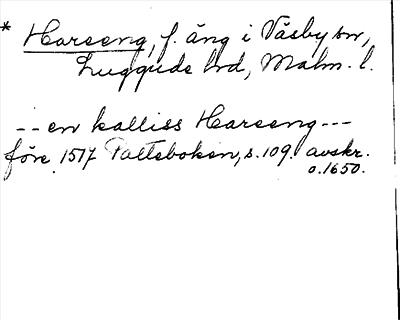 * Harseng, f. äng i Väsby sn,
Luggude hd, Malm. l.
-- en kalliss Harseng ---
före 1517 Palteboken, s. 109. avskr.
o. 1650.